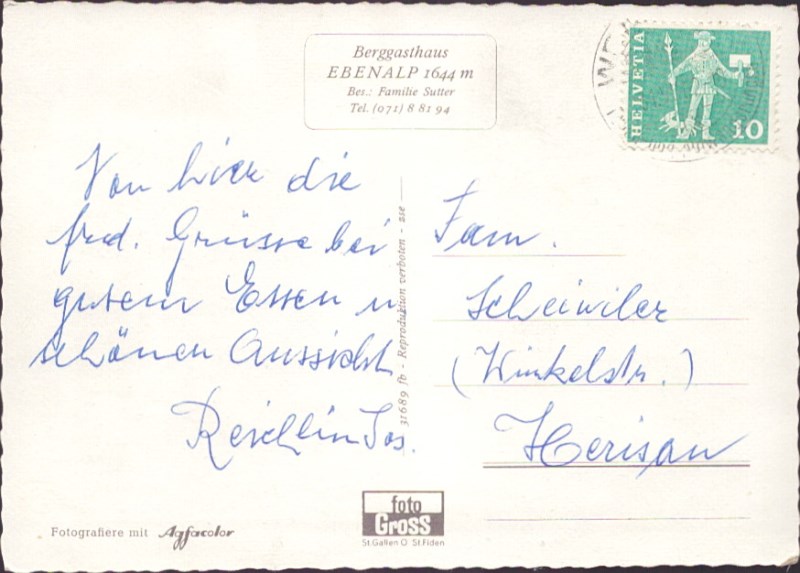 Berggasthaus
EBENALP 1644 m
Bes.: Familie Sutter
Tel. (071) 8 81 94
HELVETIA
10
Von hier die
frd. Grüsse bei
gutem Essen u
schönen Aussicht
Reichlin Jos.
31689 fb - Reproduktion verboten - ase
Fam.
Scheiwiler
(Winkelstr.)
Herisau
Fotografiere mit Agfacolor
foto
Gross
St.Gallen O St.Fiden